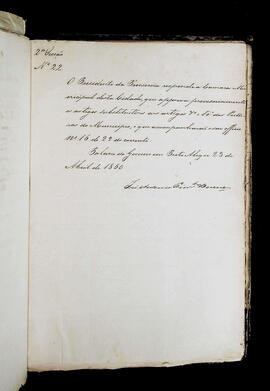 2ª Secção
Nº 22
O Presidente da Provincia responde a Camara Mu
nicipal desta Cidade, que approva provisoriamente
o artigo substitutivo ao artigo 7º
do Municipio, que acompanhou o seu officio
Nº 16 de 22 do corrente
Palacio do Governo em Porto Alegre 23 de
Abril de 1860